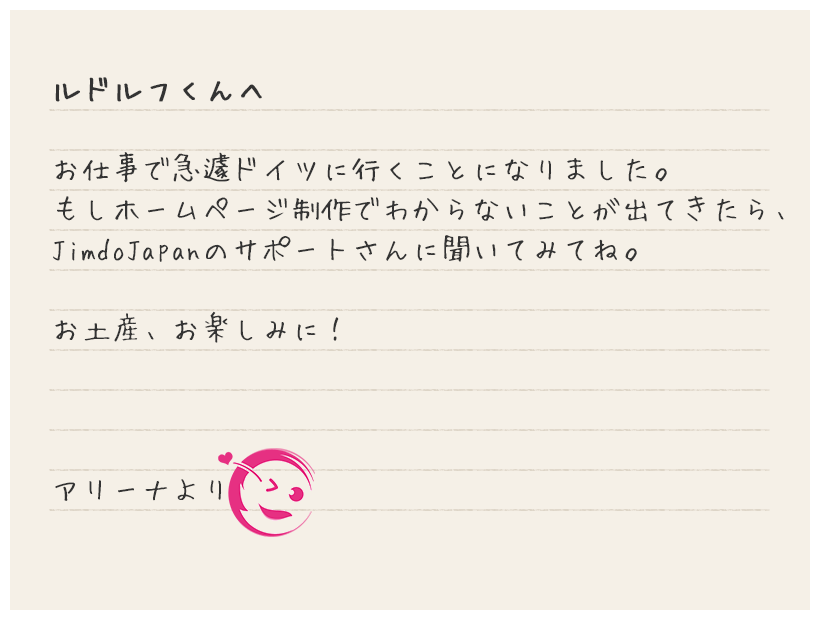 ルドルフくんへ
お仕事で急遽ドイツに行くことになりました。
もしホームページ制作でわからないことが出てきたら、
JimdoJapanのサポートさんに聞いてみてね。
お土産、お楽しみに！
アリーナより